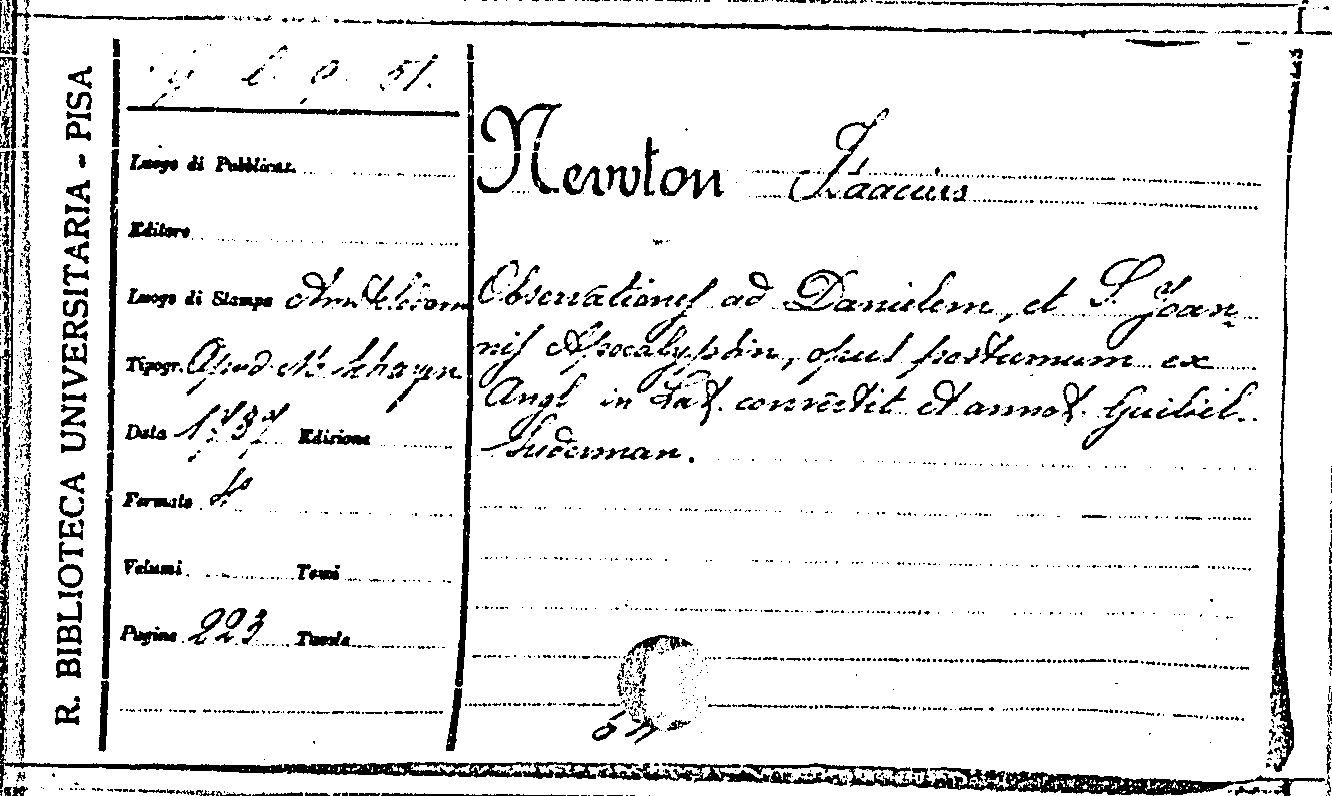 R. BIBLIOTECA UNIVERSITARIA - PISA
l. 9. 51.
Luogo di Pubblicaz.
Editore
Luogo di Stampa Amstelodam
Tipogr. Apud M. Schagen
Data 1737 Edizione
Formato 4°
Volumi Tomi
Pagine 223 Tavole
Newton Isaacius
Observationes ad Danielem, et S. Joan
nis Apocalypsin, opus postumum ex
Angl in Lat. convertit et annot. Guiliel.
Suderman.